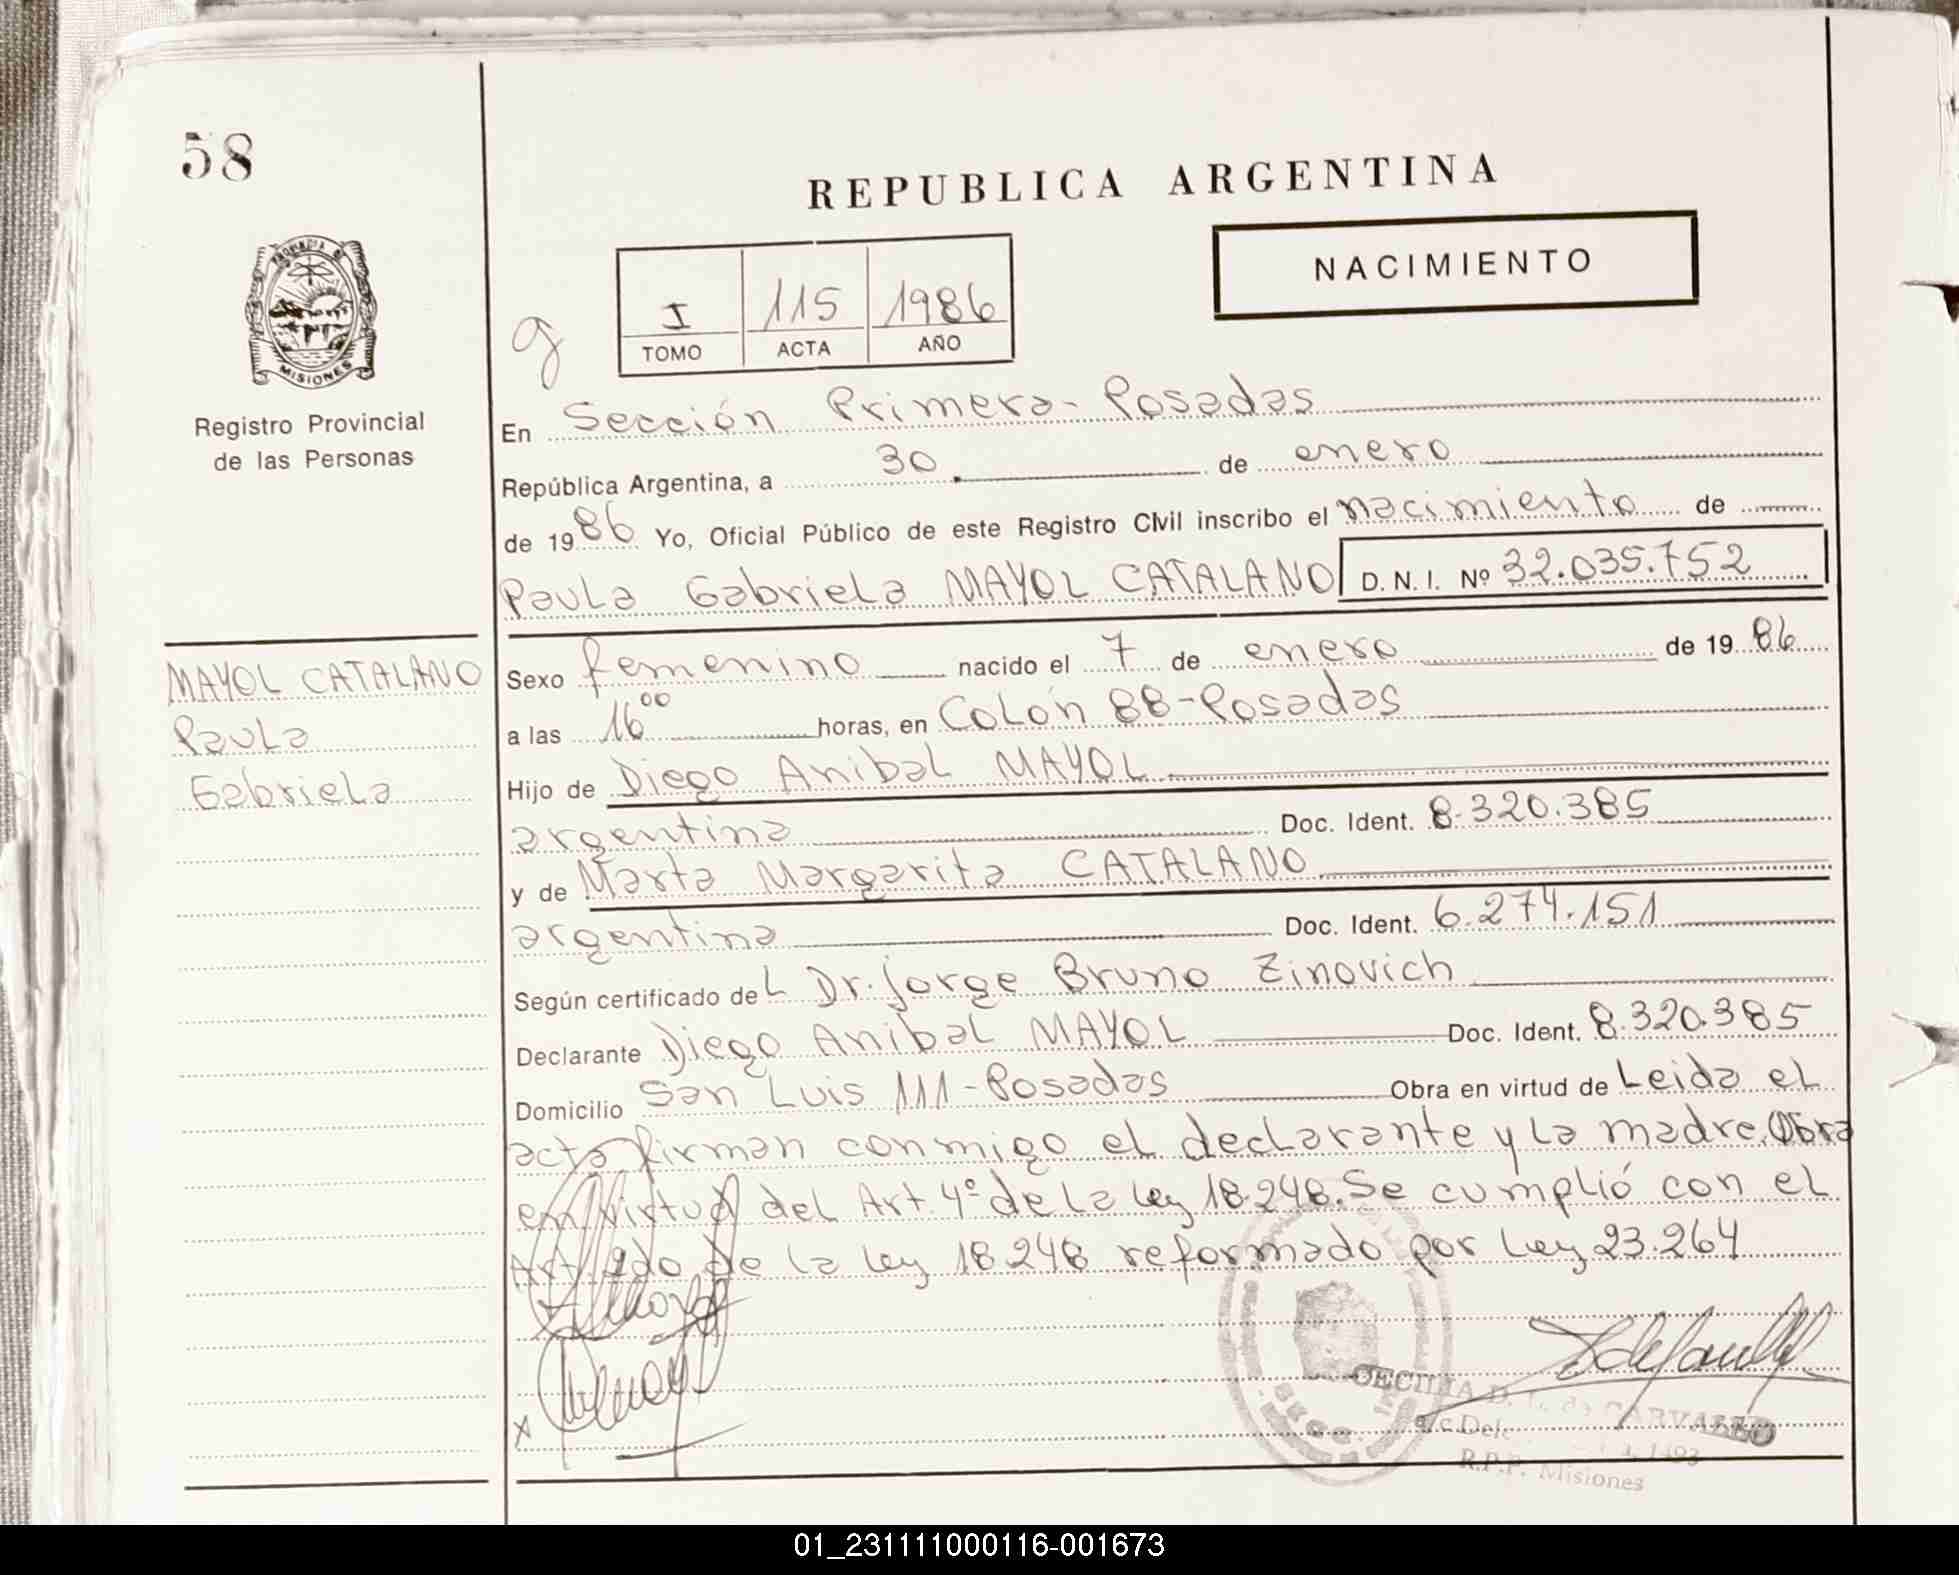 58
REPUBLICA ARGENTINA
NACIMIENTO
PROVINCIA DE
MISIONES
Registro Provincial
de las Personas
I 115 1986
TOMO ACTA AÑO
En Sección Primera - Posadas
República Argentina, a 30 de enero
de 1986 Yo, Oficial Público de este Registro Civil inscribo el nacimiento de
Paula Gabriela MAYOL CATALANO D.N.I. Nº 32.035.752
MAYOL CATALANO
Paula
Gabriela
Sexo femenino nacido el 7 de enero de 1986
a las 16 00 horas, en Colón 88 - Posadas
Hijo de Diego Anibal MAYOL
argentina Doc. Ident. 8.320.385
y de Marta Margarita CATALANO
argentina Doc. Ident. 6.274.151
Según certificado del Dr. Jorge Bruno Zinovich
Declarante Diego Anibal MAYOL Doc. Ident. 8.320.385
Domicilio San Luis 111 - Posadas Obra en virtud de Leida el
acta firman conmigo el declarante y la madre. Obra
en virtud del Art. 4º de la ley 18.248. Se cumplió con el
Art. 2do de la ley 18.248 reformado por Ley 23.264
X
CECILIA D. de CARVALLO
R.P.P. Misiones
01_231111000116-001673